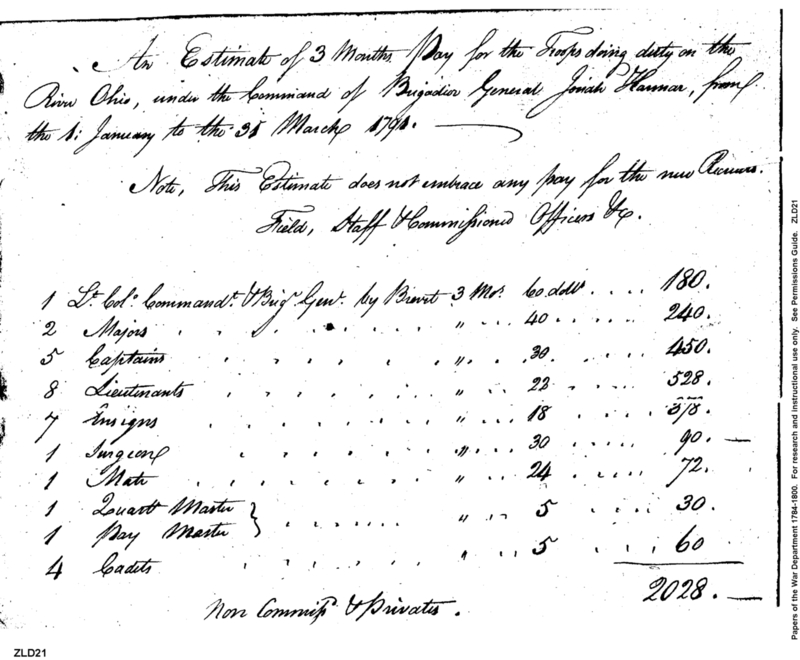 An Estimate of 3 Months Pay for the Troops doing duty on the
River Ohio, under the Command of Brigadier General Josiah Harmar, from
the 1: January to the 31 March 1791.
Note, This Estimate does not embrace any pay for the new
Field, Staff & Commissioned Officers &c.
1 Lt. Colo. Commandt. & Brigr. Genl. by Brevet 3 Mos. 60 dolls .... 180.
2 Majors " 40 240.
5 Captains " 30 450.
8 Lieutenants " 22 528.
7 Ensigns " 18 378.
1 Surgeon " 30 90.
1 Mate " 24 72.
1 Quartr Master } " 5 30.
1 Pay Master
4 Cadets " 5 60
2028.
Non Commiss. & Privates.
ZLD21
Papers of the War Department 1784-1800. For research and instructional use only. See Permissions Guide. ZLD21